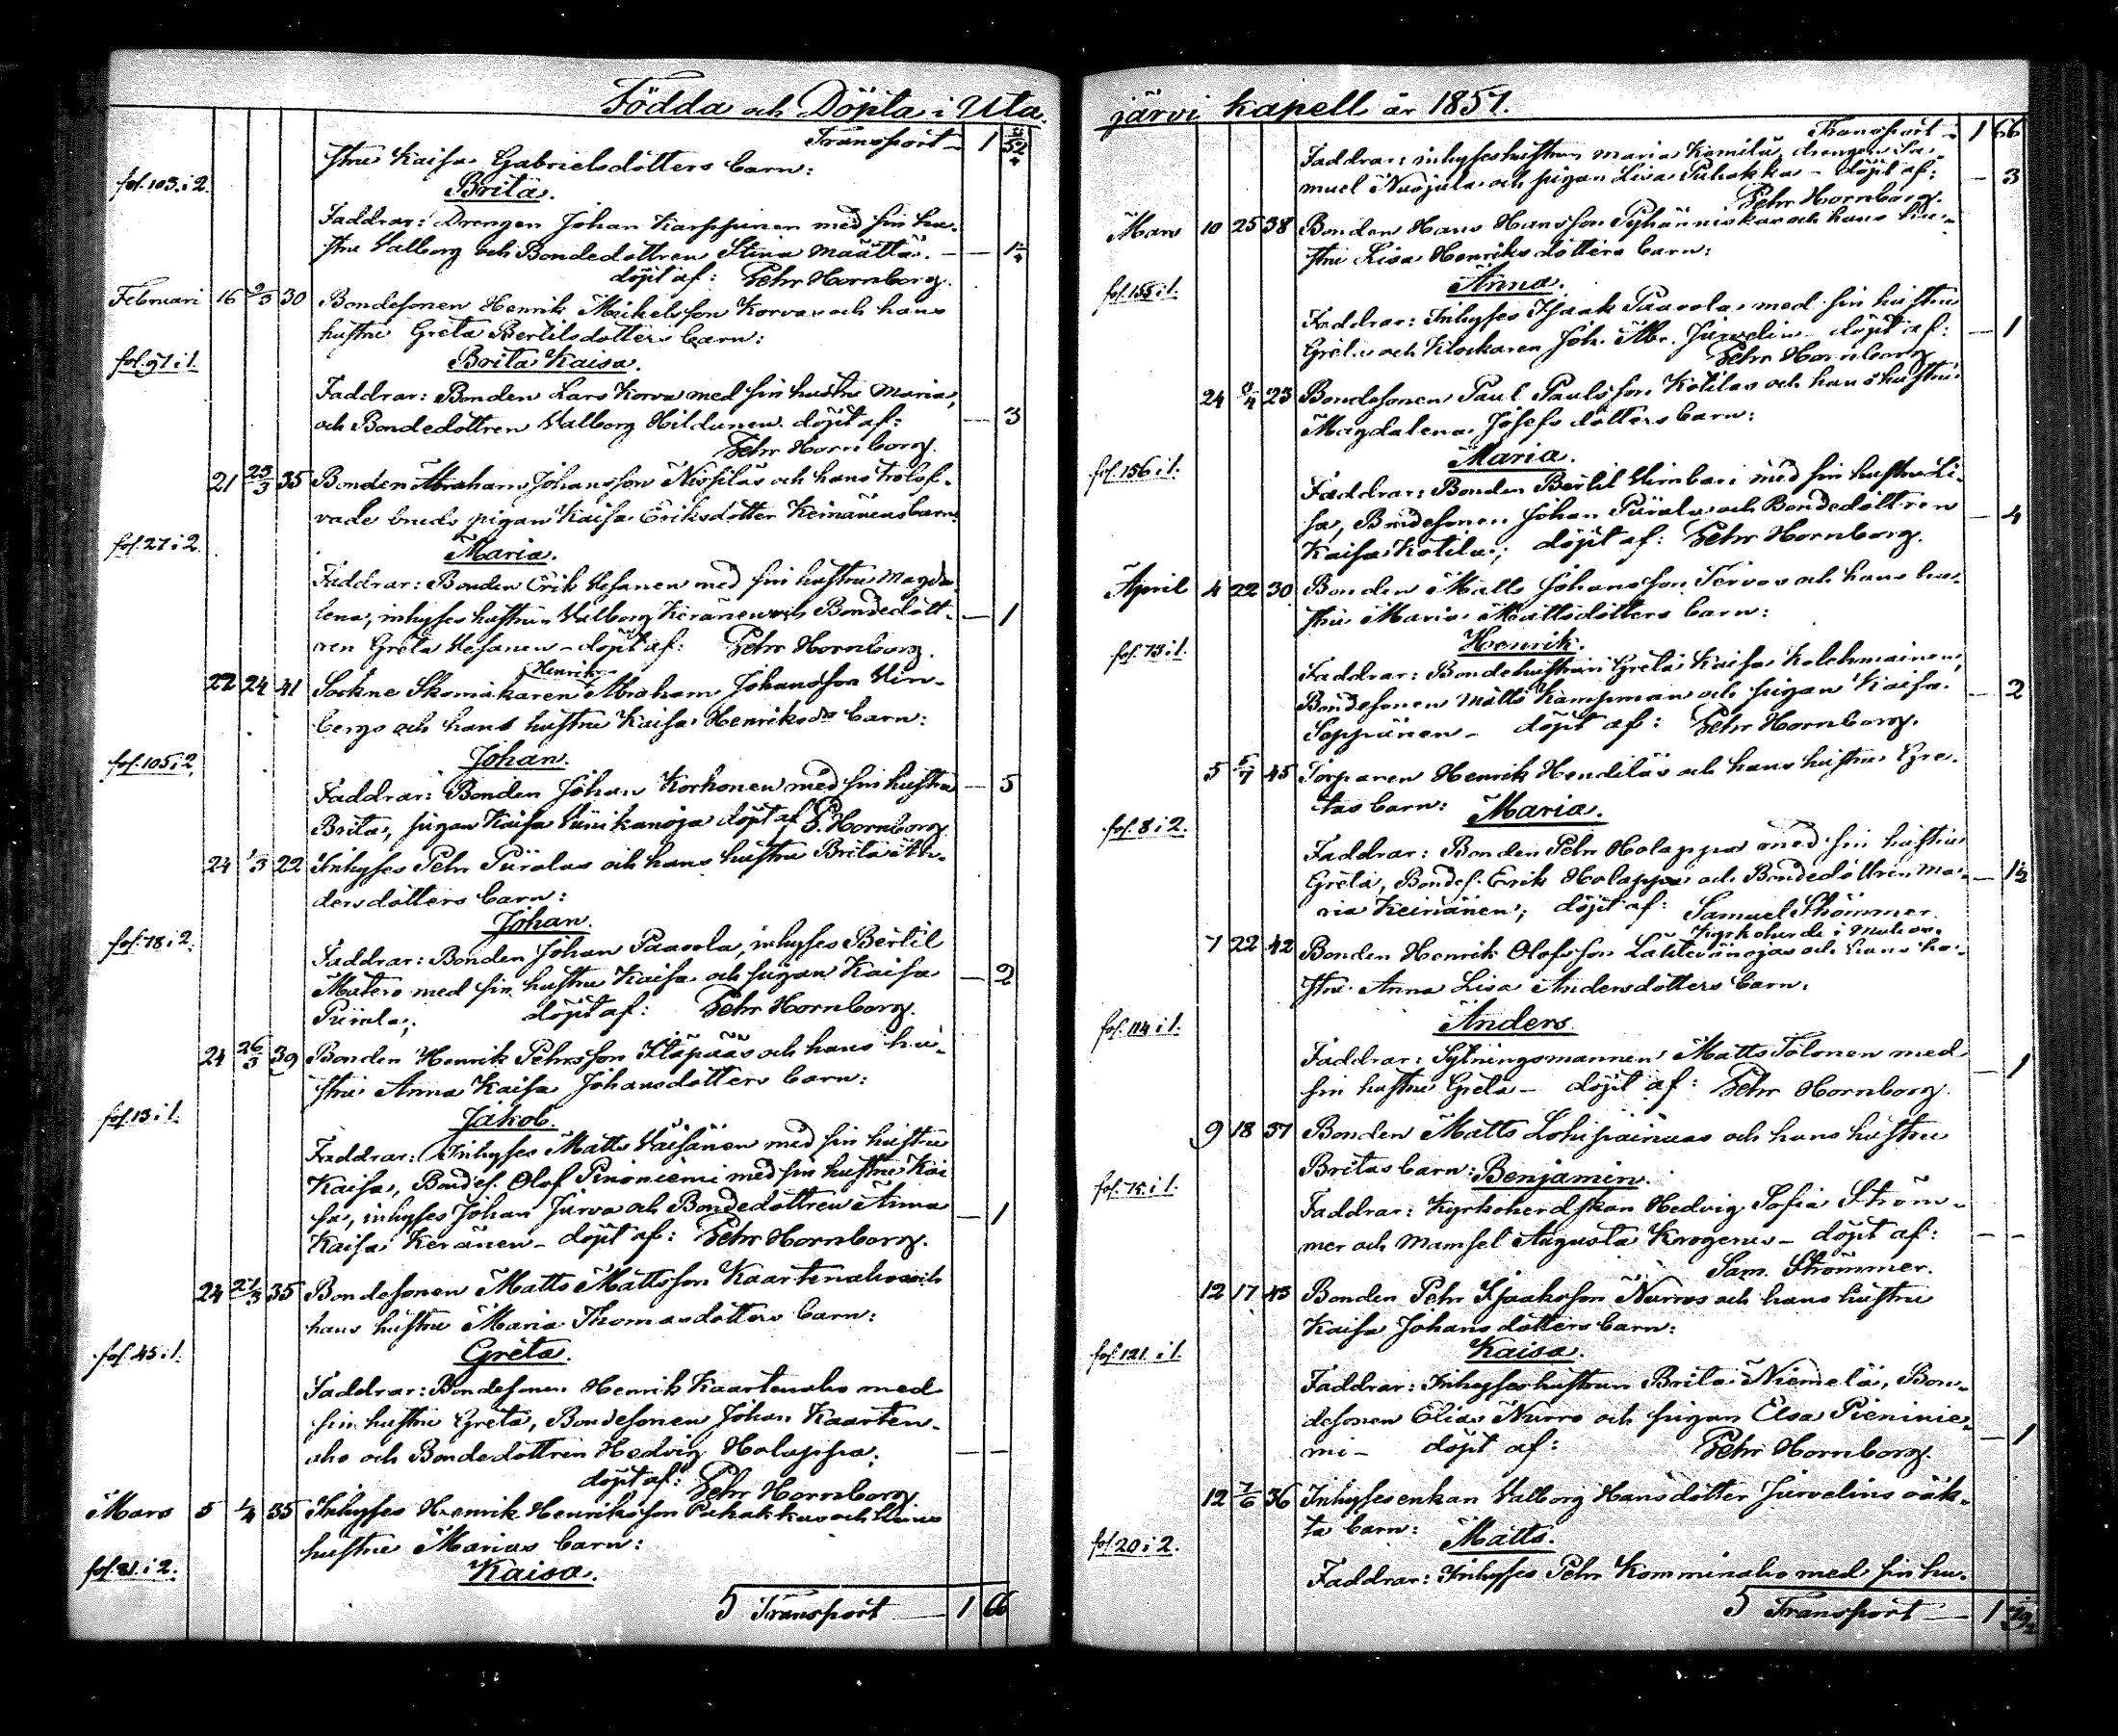 Födda och Döpta i Uta
Transport 1 52
stru Kaisa Gabrielsdotters barn:
fol. 103. i 2. Brita.
Faddrar: Drengen Johan Karppinen med sin hu-
stru Valborg och Bondedottren Stina Määttä. —
döpt af: Pehr Hornborg.
Februari 16 2/3 30 Bondesonen Henrik Mickelsson Korvas och hans
hustru Greta Bertilsdotters barn:
fol. 97 i 1. Brita Kaisa.
Faddrar: Bonden Lars Korva med sin hustru Maria,
och Bondedottren Valborg Hildunen. döpt af: — 3
Pehr Hornborg.
21 23/3 35 Bonden Abraham Johansson Nissiläs och hans trolof-
vade bruds pigan Kaisa Eriksdotter Keinänens barn:
fol. 27 i 2. Maria.
Faddrar: Bonden Erik Hesanen med sin hustru Magda-
lena, inhyses hustrun Valborg Keränen och Bondedott- — 1
ren Greta Hesanen – döpt af: Pehr Hornborg.
Henrik
22 24 41 Sockne Skomakaren Abraham Johansson Virn-
bergs och hans hustru Kaisa Henriksdrs barn:
fol. 105 i 2. Johan.
Faddrar: Bonden Johan Korhonen med sin hustru — 5
Brita, pigan Kaisa döpt af P. Hornborg.
24 1/3 22 Inhyses Pehr Piiralas och hans hustru Brita An-
dersdotters barn:
Johan.
fol. 78 i 2. Faddrar: Bonden Johan Paavola, inhyses Bertil
Matero med sin hustru Kaisa och pigan Kaisa — 2
Piirala; döpt af: Pehr Hornborg.
24 26/3 39 Bonden Henrik Pehrsson Ylipääs och hans hu-
stru Anna Kaisa Johansdotters barn:
fol. 13 i 1. Jakob.
Faddrar: Inhyses Matts Väisänen med sin hustru
Kaisa, Bondes. Olof Pinoniemi med sin hustru Kai
sa, inhyses Johan Jurva och Bondedottren Anna — 1
Kaisa Keränen – döpt af: Pehr Hornborg.
24 27/3 35 Bondesonen Matts Mattsson Kaartenahos och
hans hustru Maria Thomasdotters barn:
fol. 45 i 1. Greta.
Faddrar: Bondesonen Henrik Kaartenaho med
sin hustru Greta, Bondesonen Johan Kaarten-
aho och Bondedottren Hedvig Holappa; — —
döpt af: Pehr Hornborg
Mars 5 1/4 35 Inhyses Henrik Henriksson Puhakkas och hans
hustru Marias barn:
fol. 81. i 2. Kaisa.
5 Transport — 1 66
järvi kapell år 1857.
Transport – 1 66
Faddrar: inhyseshustrun Maria Komila, drengen Sa-
muel Nuojula och pigan Lisa Puhakka – döpt af: — 3
Pehr Hornborg.
Mars 10 25 38 Bonden Hans Hansson Pyhänniskas och hans hu-
stru Lisa Henriksdotters barn:
fol. 155 i 1. Anna.
Faddrar: Inhyses Isaak Paavola med sin hustru
Greta och Klockaren Joh. Abr. Jurvelin – döpt af: — 1
Pehr Hornborg
24 2/4 23 Bondesonen Paul Paulsson Kotilas och hans hustru
Magdalena Josefsdotters barn:
fol. 156 i 1. Maria.
Faddrar: Bonden Bertil med sin hustru Li-
sa, Bondesonen Johan Piirala och Bondedottren — 4
Kaisa Kotila; döpt af: Pehr Hornborg.
April 4 22 30 Bonden Matts Johansson Tervos och hans hu-
stru Maria Mattsdotters barn:
fol. 73 i 1. Henrik.
Faddrar: Bondehustrun Greta Kaisa Kolehmainen,
Bondesonen Matts Kampman och pigan Kaisa — 2
Seppänen – döpt af: Pehr Hornborg.
5 5/7 45 Torparen Henrik Hendiläs och hans hustru Gre-
tas barn: Maria.
fol. 8 i 2.
Faddrar: Bonden Pehr Holappa med sin hustru
Greta, Bondes. Erik Holappa och Bondedottren Ma- — 1½
ria Keinänen; döpt af: Samuel Strömmer.
Kyrkoherde i Muhos.
7 22 42 Bonden Henrik Olofsson Lahtevänojas och hans hu-
stru Anna Lisa Andersdotters barn:
fol. 114 i 1. Anders.
Faddrar: Sytningsmannen Matts Tolonen med
sin hustru Greta – döpt af: Pehr Hornborg. — 1
9 18 37 Bonden Matts Lohipainuas och hans hustru
Britas barn: Benjamin.
fol. 75. i 1.
Faddrar: Kyrkoherdskan Hedvig Sofia Ström-
mer och Mamsel Augusta Krogerus – döpt af: — —
Sam. Strömmer.
12 17 43 Bonden Pehr Isaksson Nurros och hans hustru
Kaisa Johansdotters barn:
fol. 121. i 1. Kaisa.
Faddrar: Inhyseshustrun Brita Niemelä, Bon-
desonen Elias Nurro och pigan Elsa Pieninie-
mi – döpt af: Pehr Hornborg. — 1
12 7/6 36 Inhysesenkan Valborg Hansdotter Jurvelins oäk-
ta barn: Matts.
fol. 20 i 2.
Faddrar: Inhyses Pehr Komminaho med sin hu-
5 Transport — 1